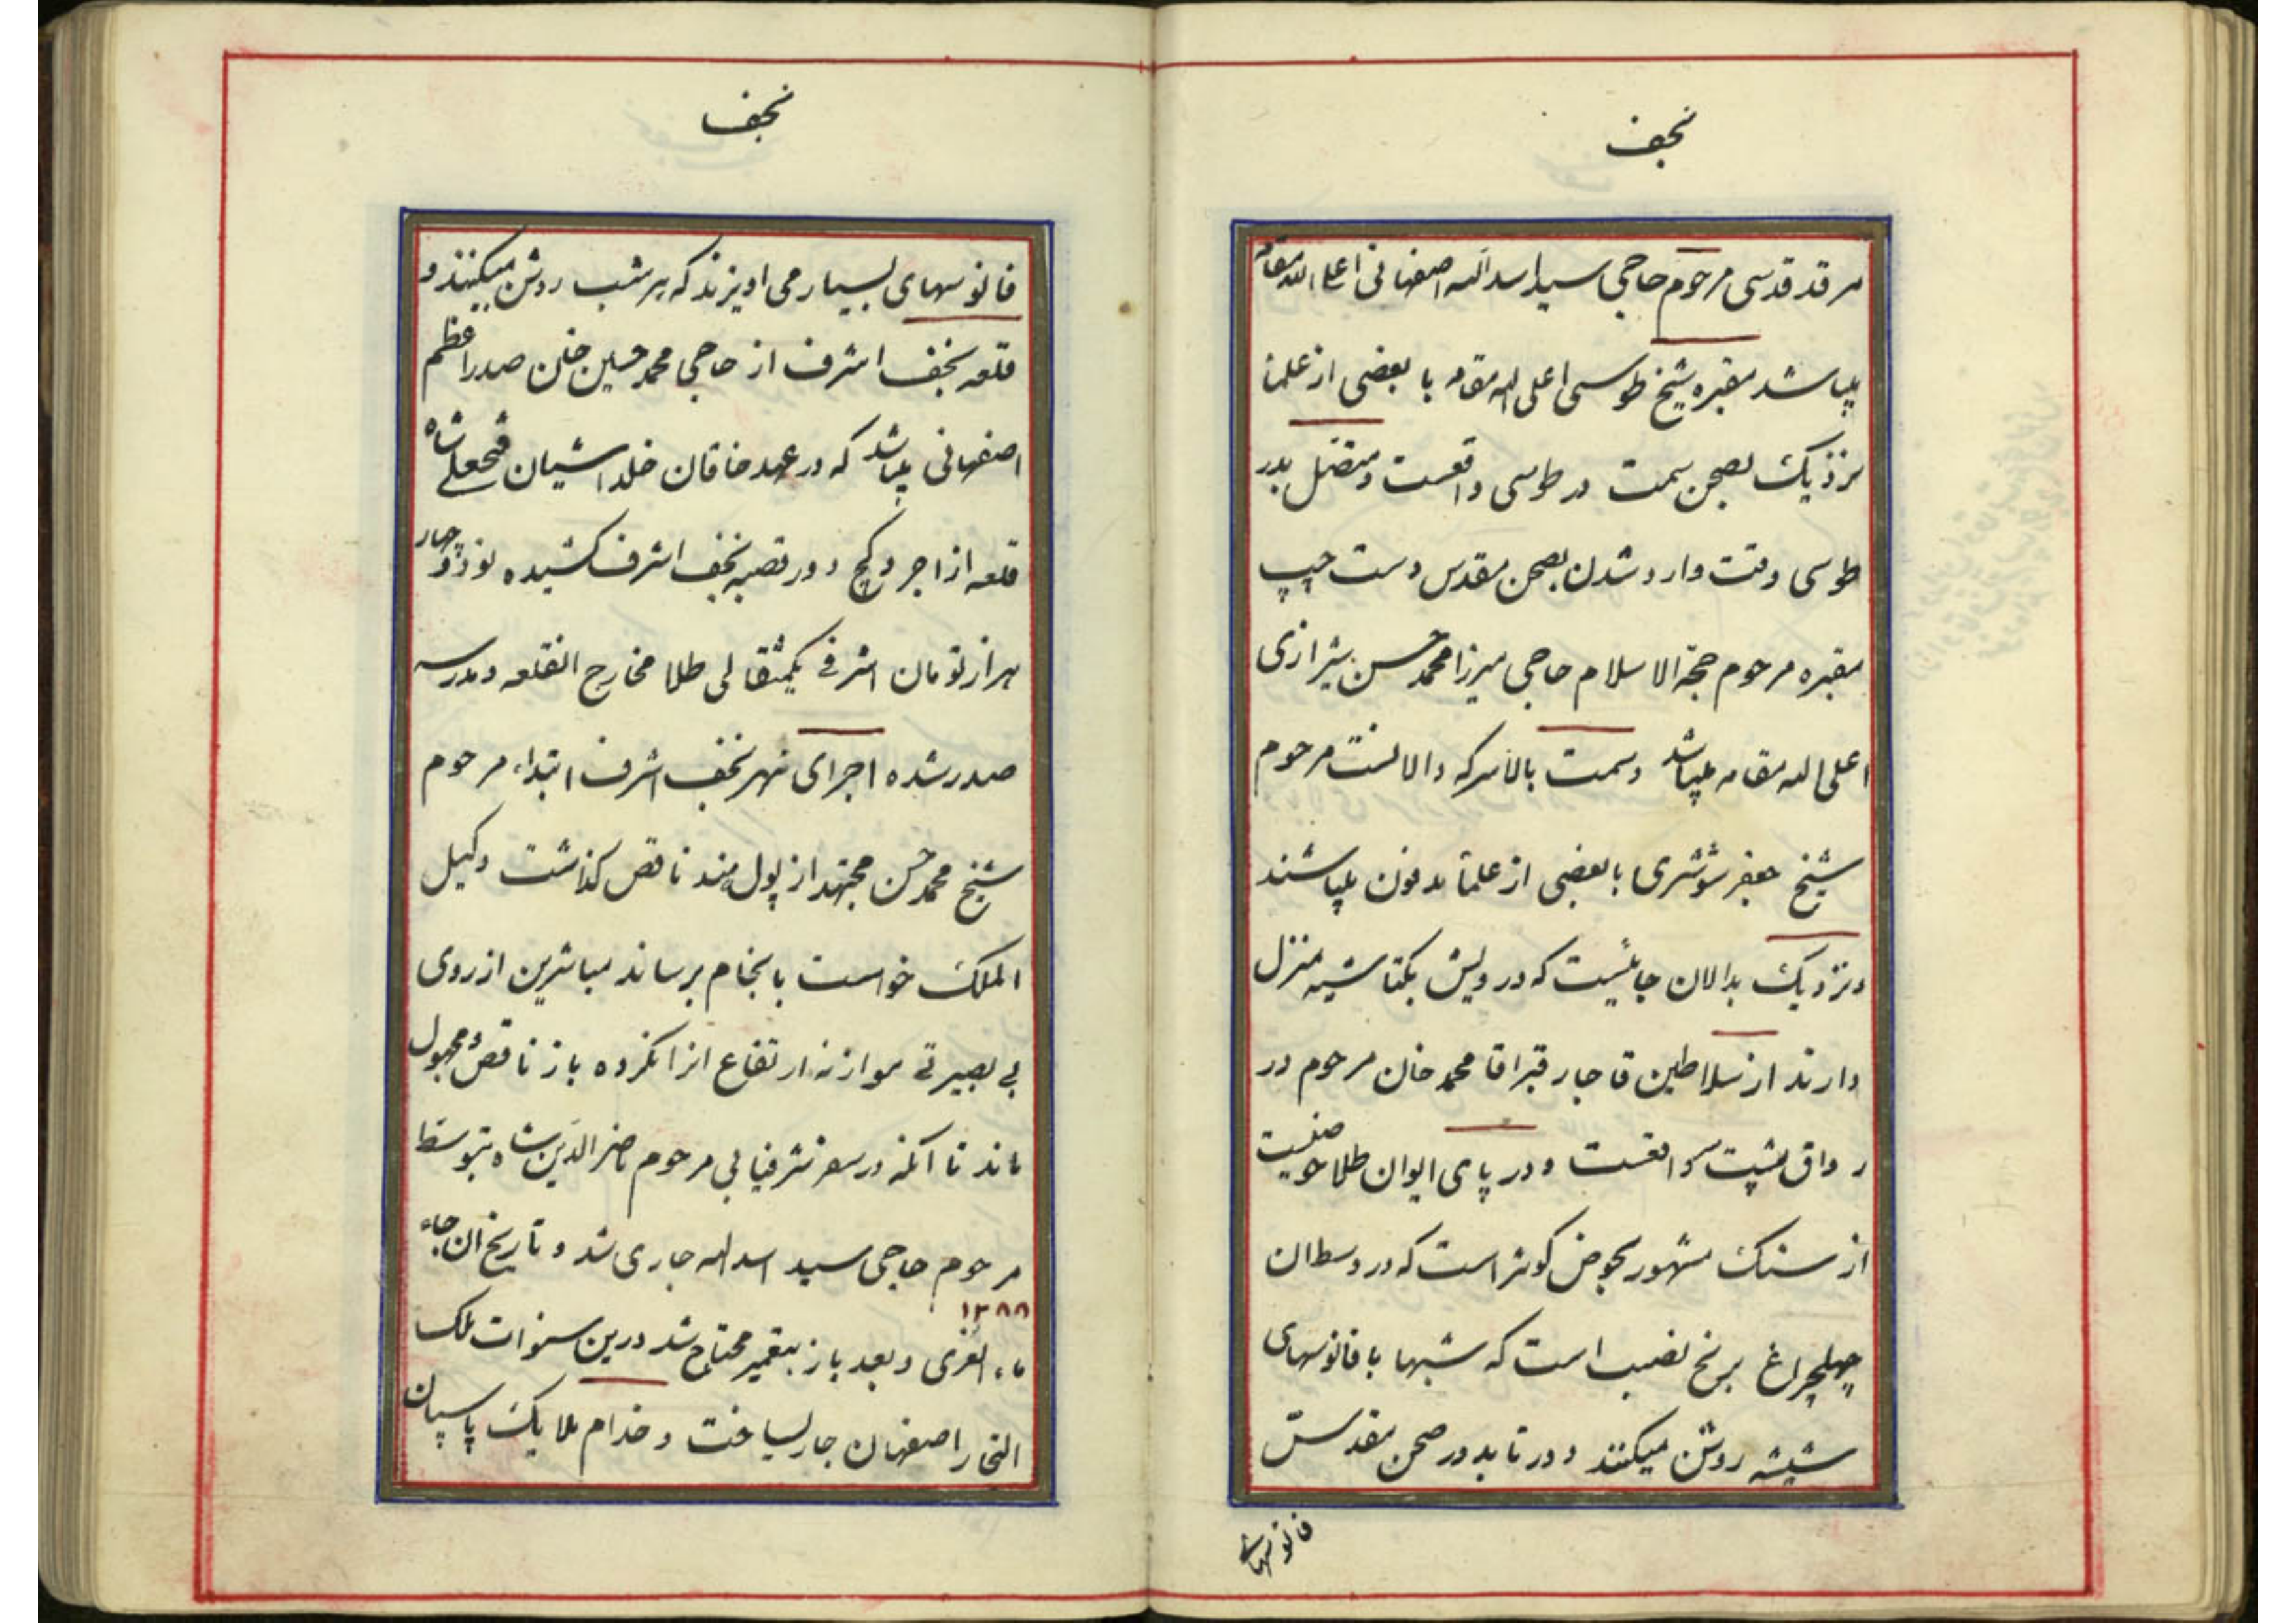 نجف
مرقد قدسی مرحوم حاجی سید اسد الله اصفهانی اعلی الله مقامه
میباشد مقبره شیخ طوسی اعلی الله مقامه با بعضی از علما
نزدیک بصحن سمت در طوسی واقعست و متصل بدر
طوسی وقت وارد شدن بصحن مقدس دست چپ
مقبره مرحوم حجة الاسلام حاجی میرزا محمد حسن شیرازی
اعلی الله مقامه میباشد و سمت بالاسر که دالانست مرحوم
شیخ جعفر شوشتری با بعضی از علما مدفون میباشند
و نزدیک بدالان جائیست که درویش بکتاشیه منزل
دارند از سلاطین قاجار قبر اقا محمد خان مرحوم در
رواق پشت سر واقعست و در پای ایوان طلا حوضیست
از سنک مشهور بحوض کوثر است که در وسط ان
چهلچراغ برنج نصب است که شبها با فانوسهای
شیشه روشن میکنند و دور تا بدور صحن مقدس
فانوسهای
نجف
فانوسهای بسیار می اویزند که هر شب روشن میکنند و
قلعه نجف اشرف از حاجی محمد حسین خان صدر اعظم
اصفهانی میباشد که در عهد خاقان خلد اشیان فتحعلی شاه
قلعه از اجر و کچ دور قصبه نجف اشرف کشیده نود و چهار
هزار تومان اشرفی یکمثقالی طلا مخارج القلعه و مدرسه
صدر شده اجرای نهر نجف اشرف ابتداء مرحوم
شیخ محمد حسن مجتهد از پول هند ناقص کذاشت وکیل
الملک خواست بانجام برساند مباشرین از روی
بی بصیرتی موازنه ارتفاع انرا نکرده باز ناقص و مجهول
ماند تا انکه در سفر شرفیابی مرحوم ناصر الدین شاه بتوسط
مرحوم حاجی سید اسد الله جاری شد و تاریخ ان جاء
۱۲۸۸
ماء الغری و بعد باز بتعمیر محتاج شد درین سنوات ملک
التجار اصفهان جار یساخت و خدام ملایک پاسبان